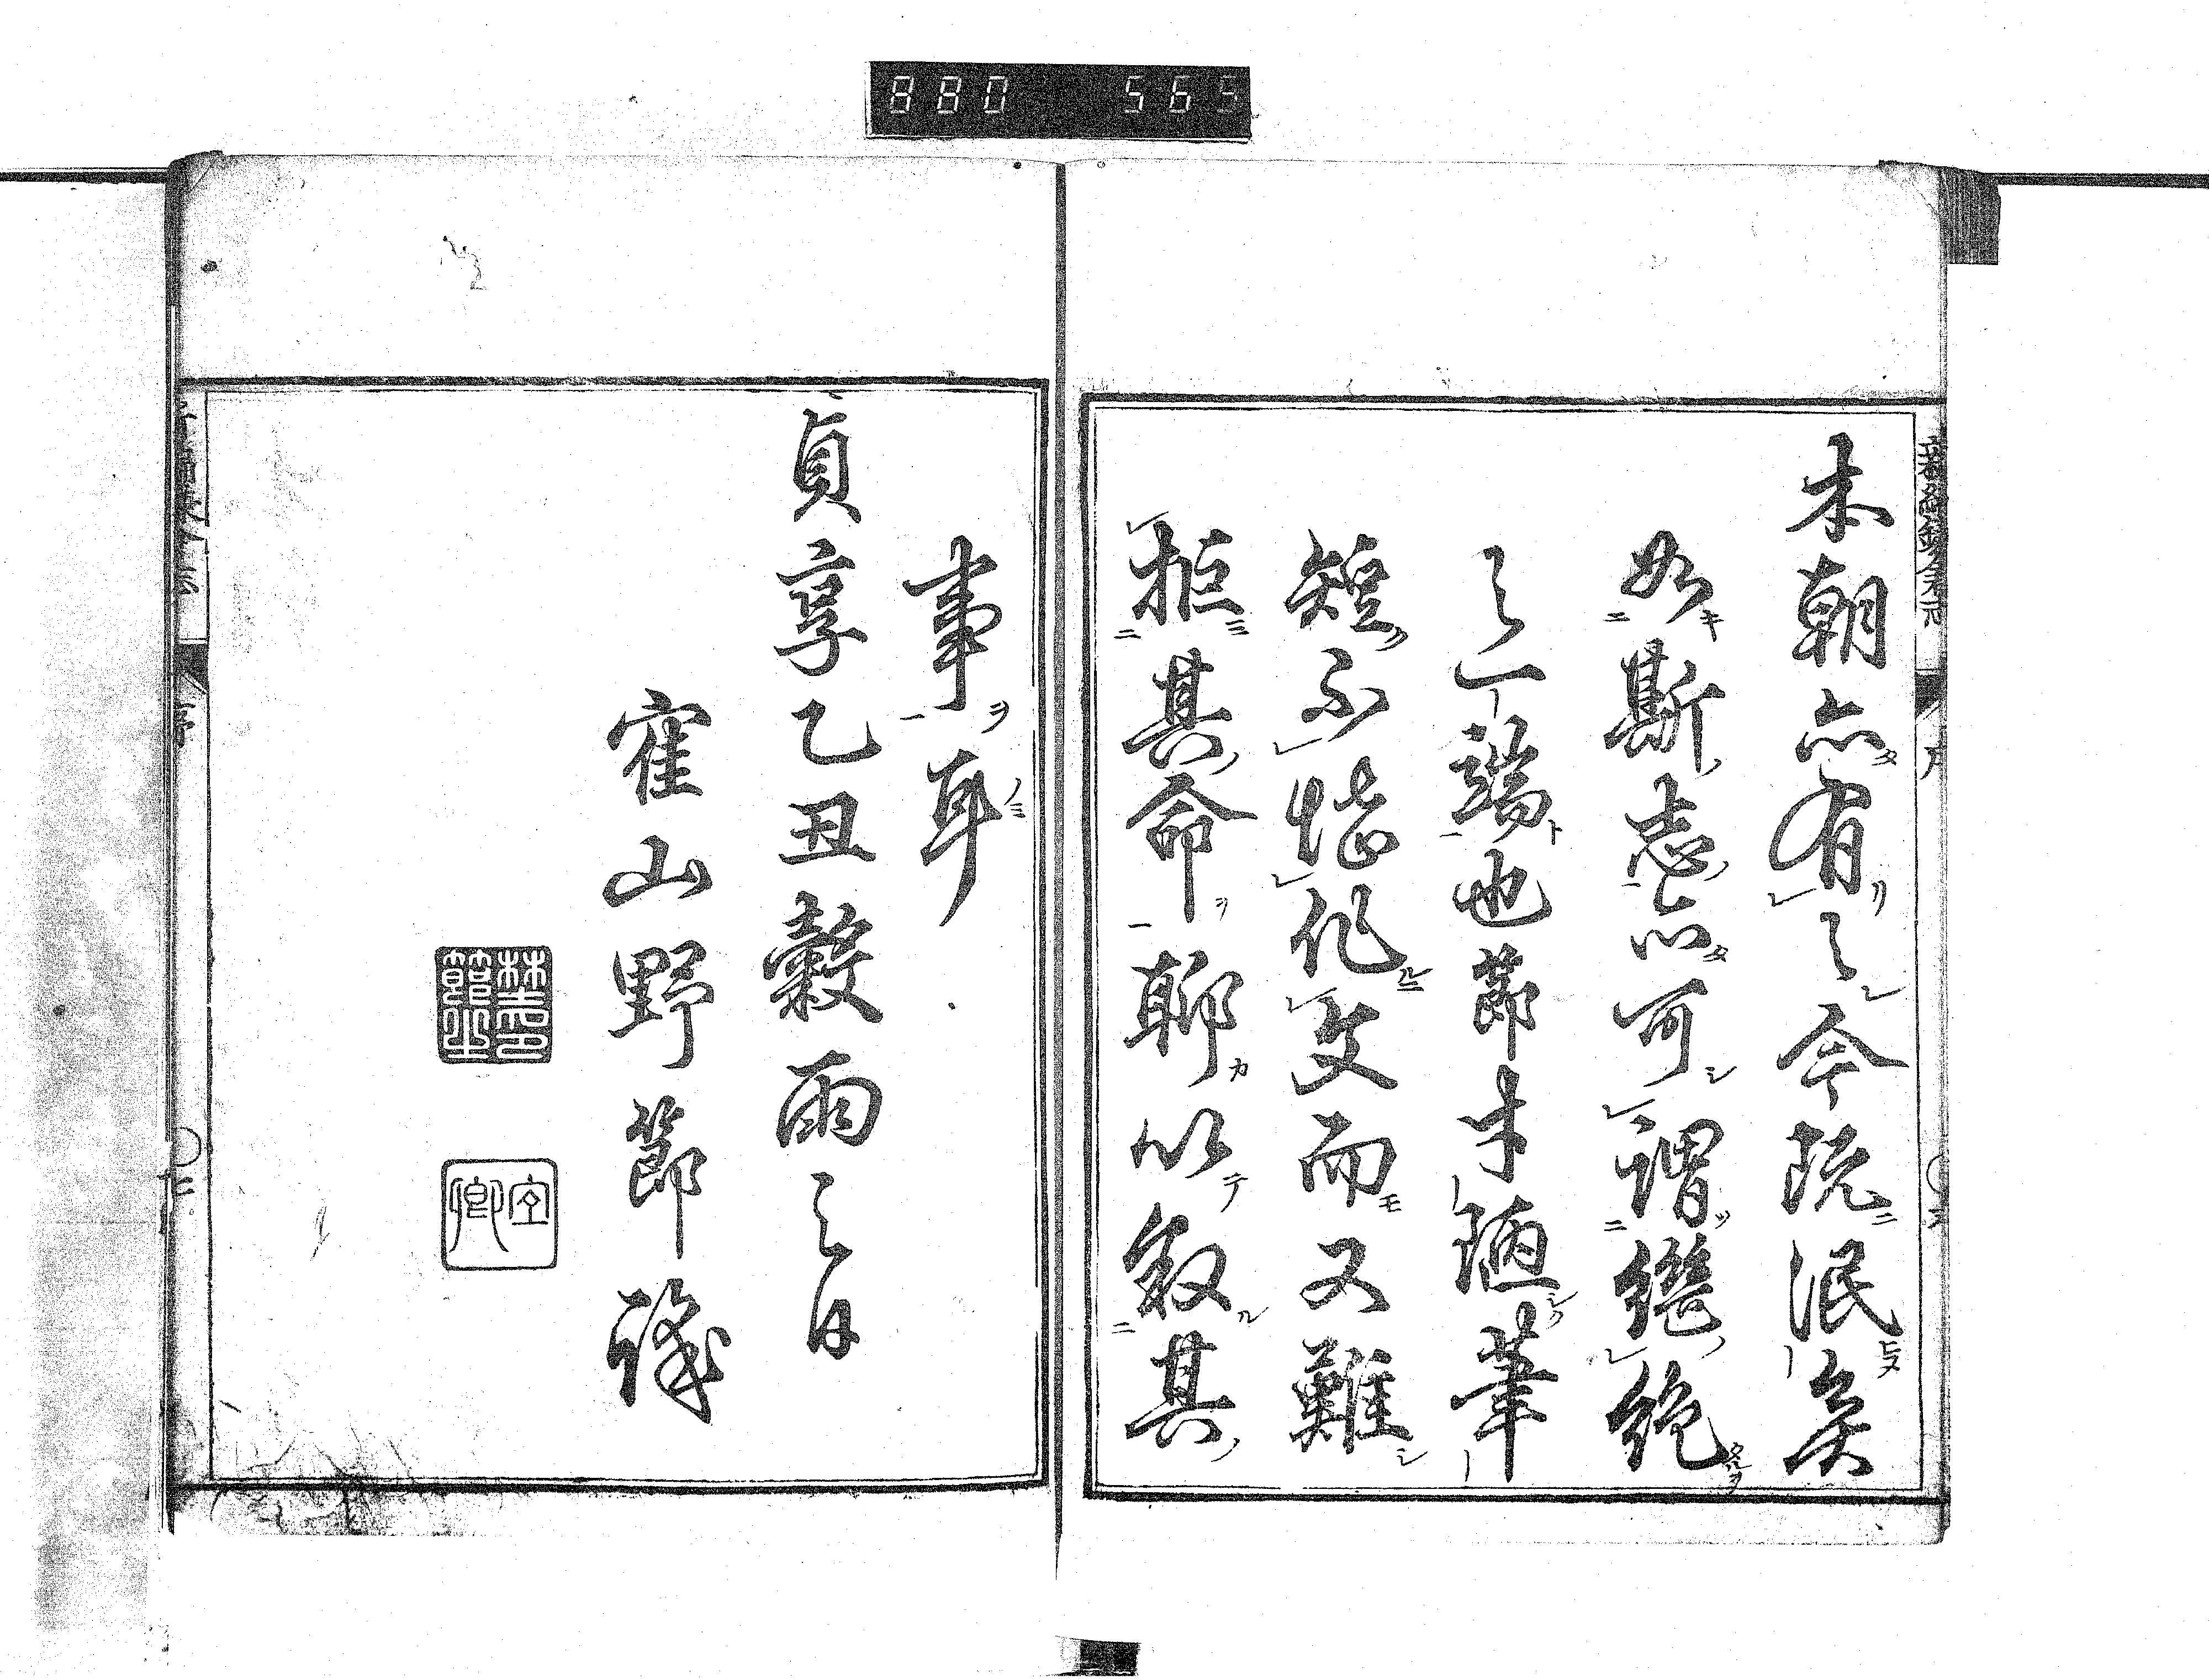 880 565
本朝亦有之今既泯矣
如斯志亦可謂繼絶
之一端也節才陋筆
短不作文而又難
拒其命聊以叙其
事耳
貞享乙丑穀雨之日
寉山野節識
宜卿